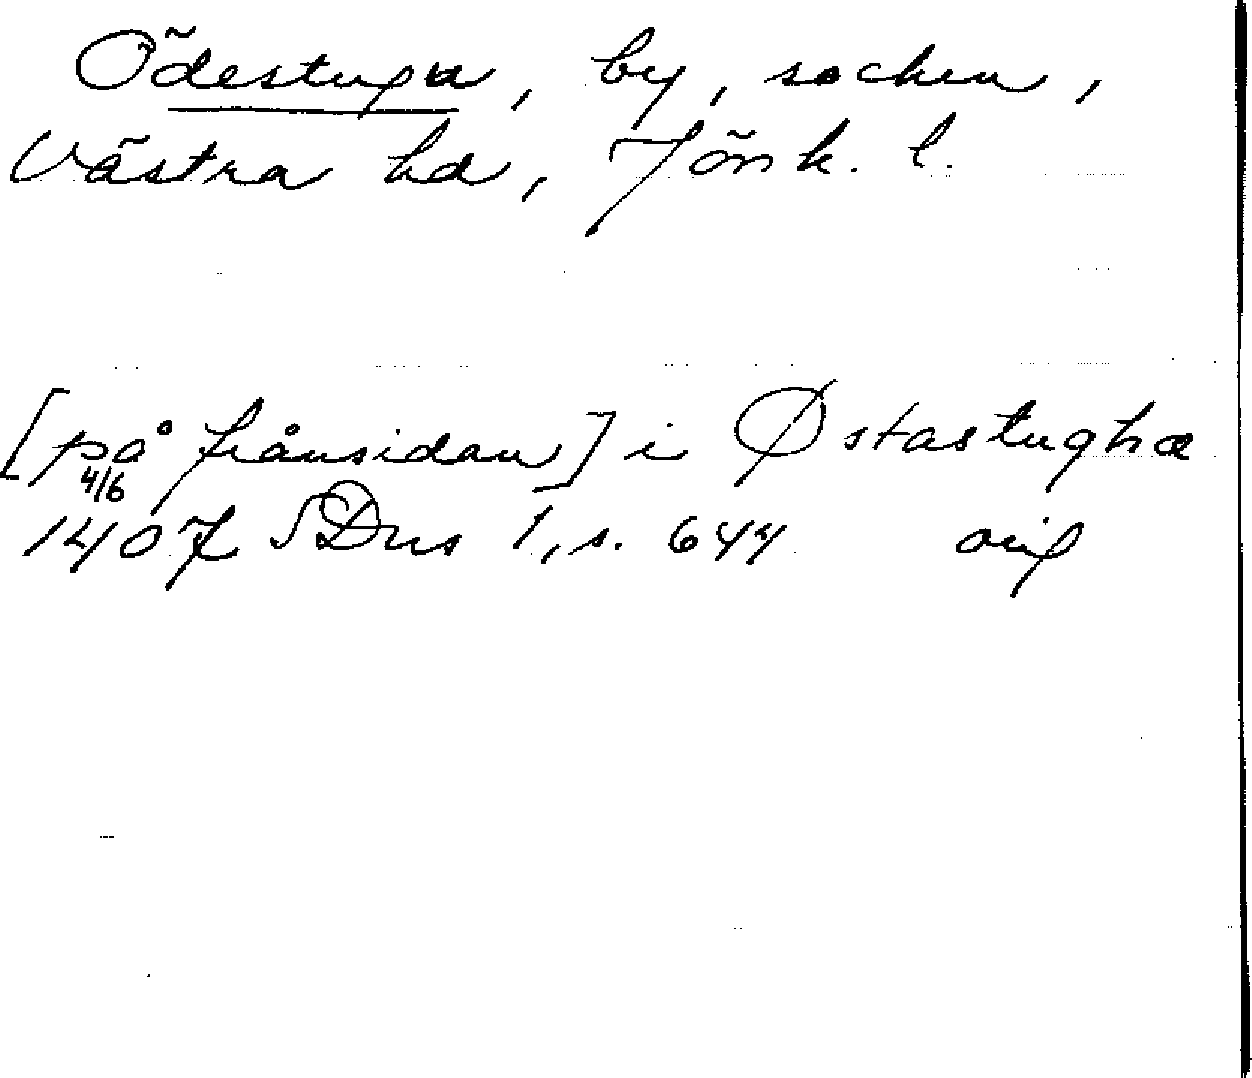 Ödestuga, by, socken,
Västra hd, Jönk. l.
[på frånsidan] i Østastughæ
4/6
1407 SDns 1, s. 644 orig